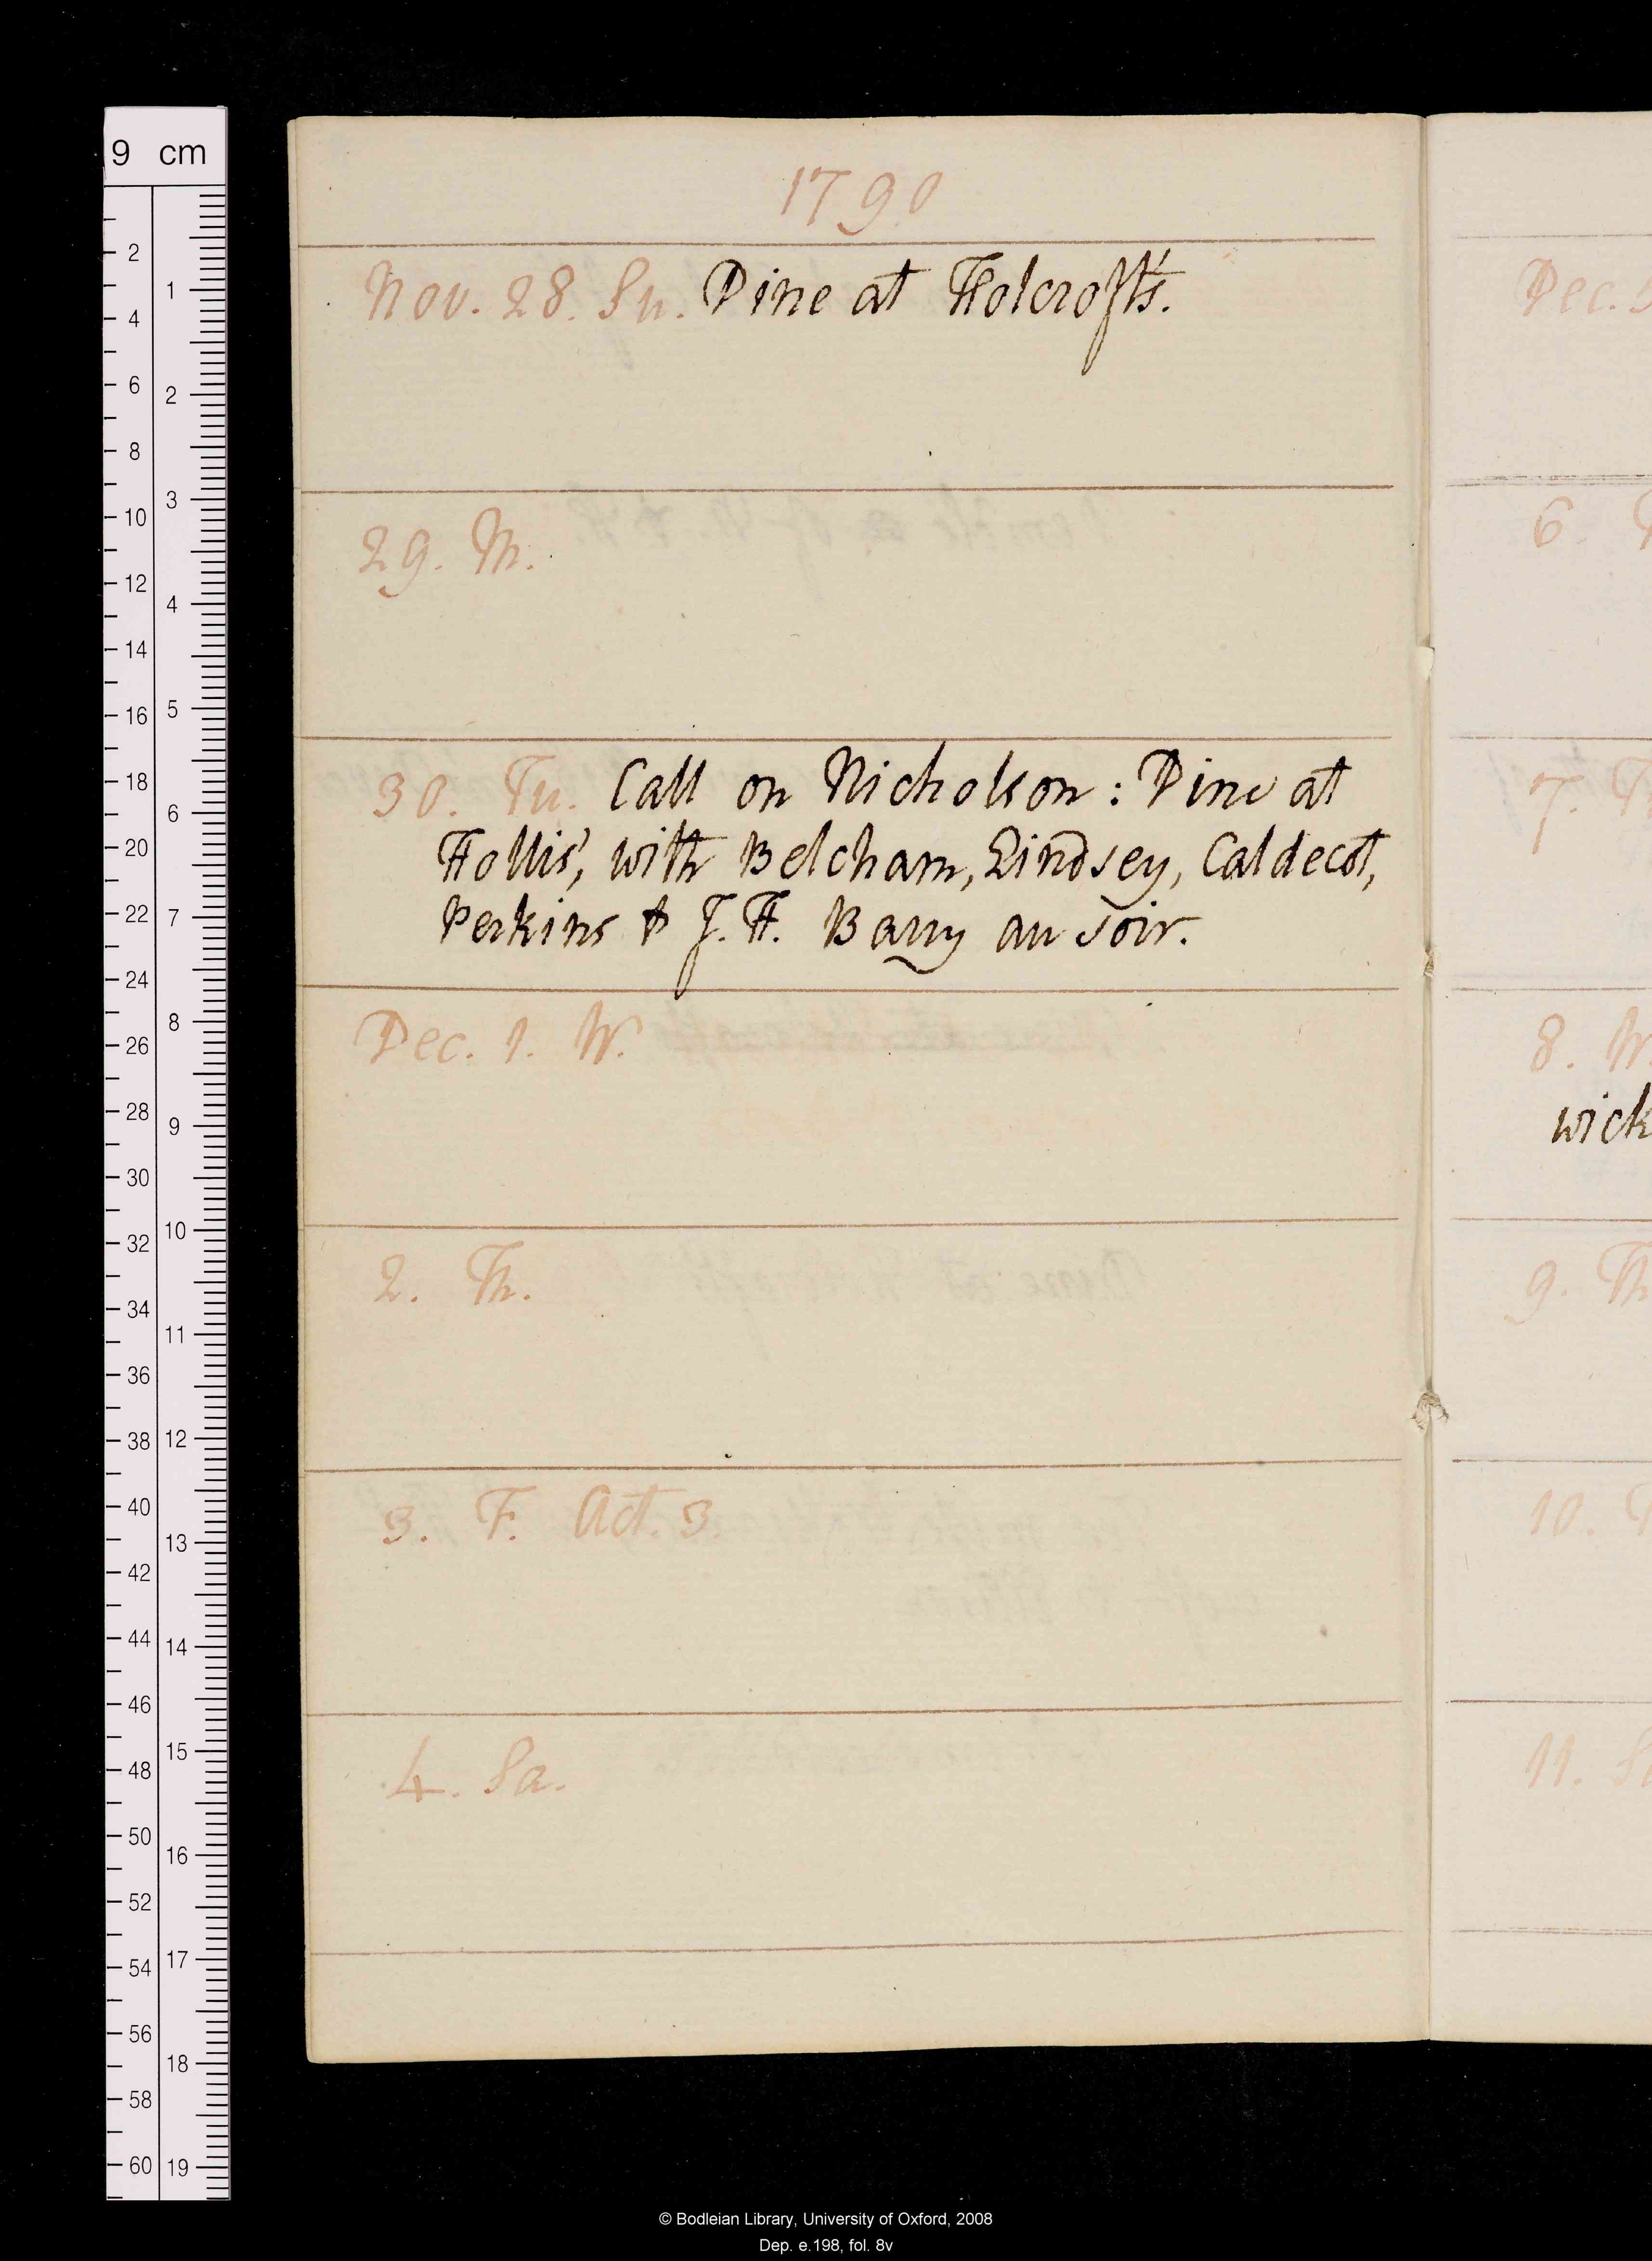 9 cm
2
4
6
8
10
12
14
16
18
20
22
24
26
28
30
32
34
36
38
40
42
44
46
48
50
52
54
56
58
60
1
2
3
4
5
6
7
8
9
10
11
12
13
14
15
16
17
18
19
1790
Nov. 28. Su. Dine at Holcroft's.
29. M.
30. Tu. Call on Nicholson: Dine at
Hollis', with Belcham, Lindsey, Caldecot,
Perkins & J. H. Barry au soir.
Dec. 1. W.
2. Th.
3. F. Act. 3.
4. Sa.
Dec. 5
6.
7. T
8. W.
wick
9. Th
10.
11. Sa
© Bodleian Library, University of Oxford, 2008
Dep. e.198, fol. 8v